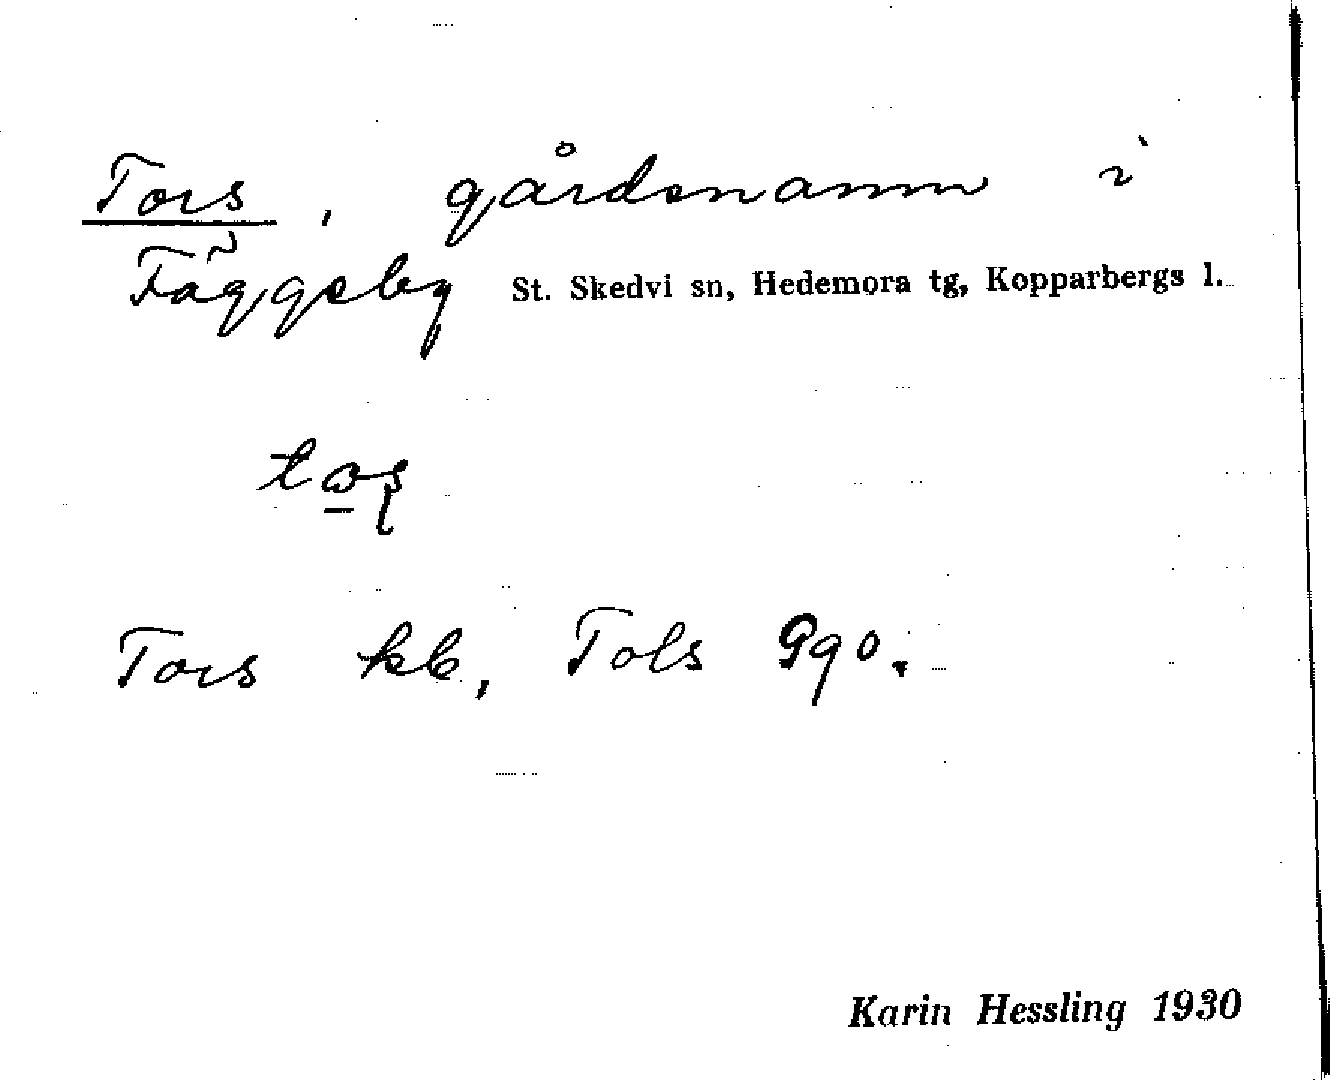 Tors, gårdsnamn i
Fäggeby St. Skedvi sn, Hedemora tg, Kopparbergs l.
Tors kb, Tols Ggo.
Karin Hessling 1930